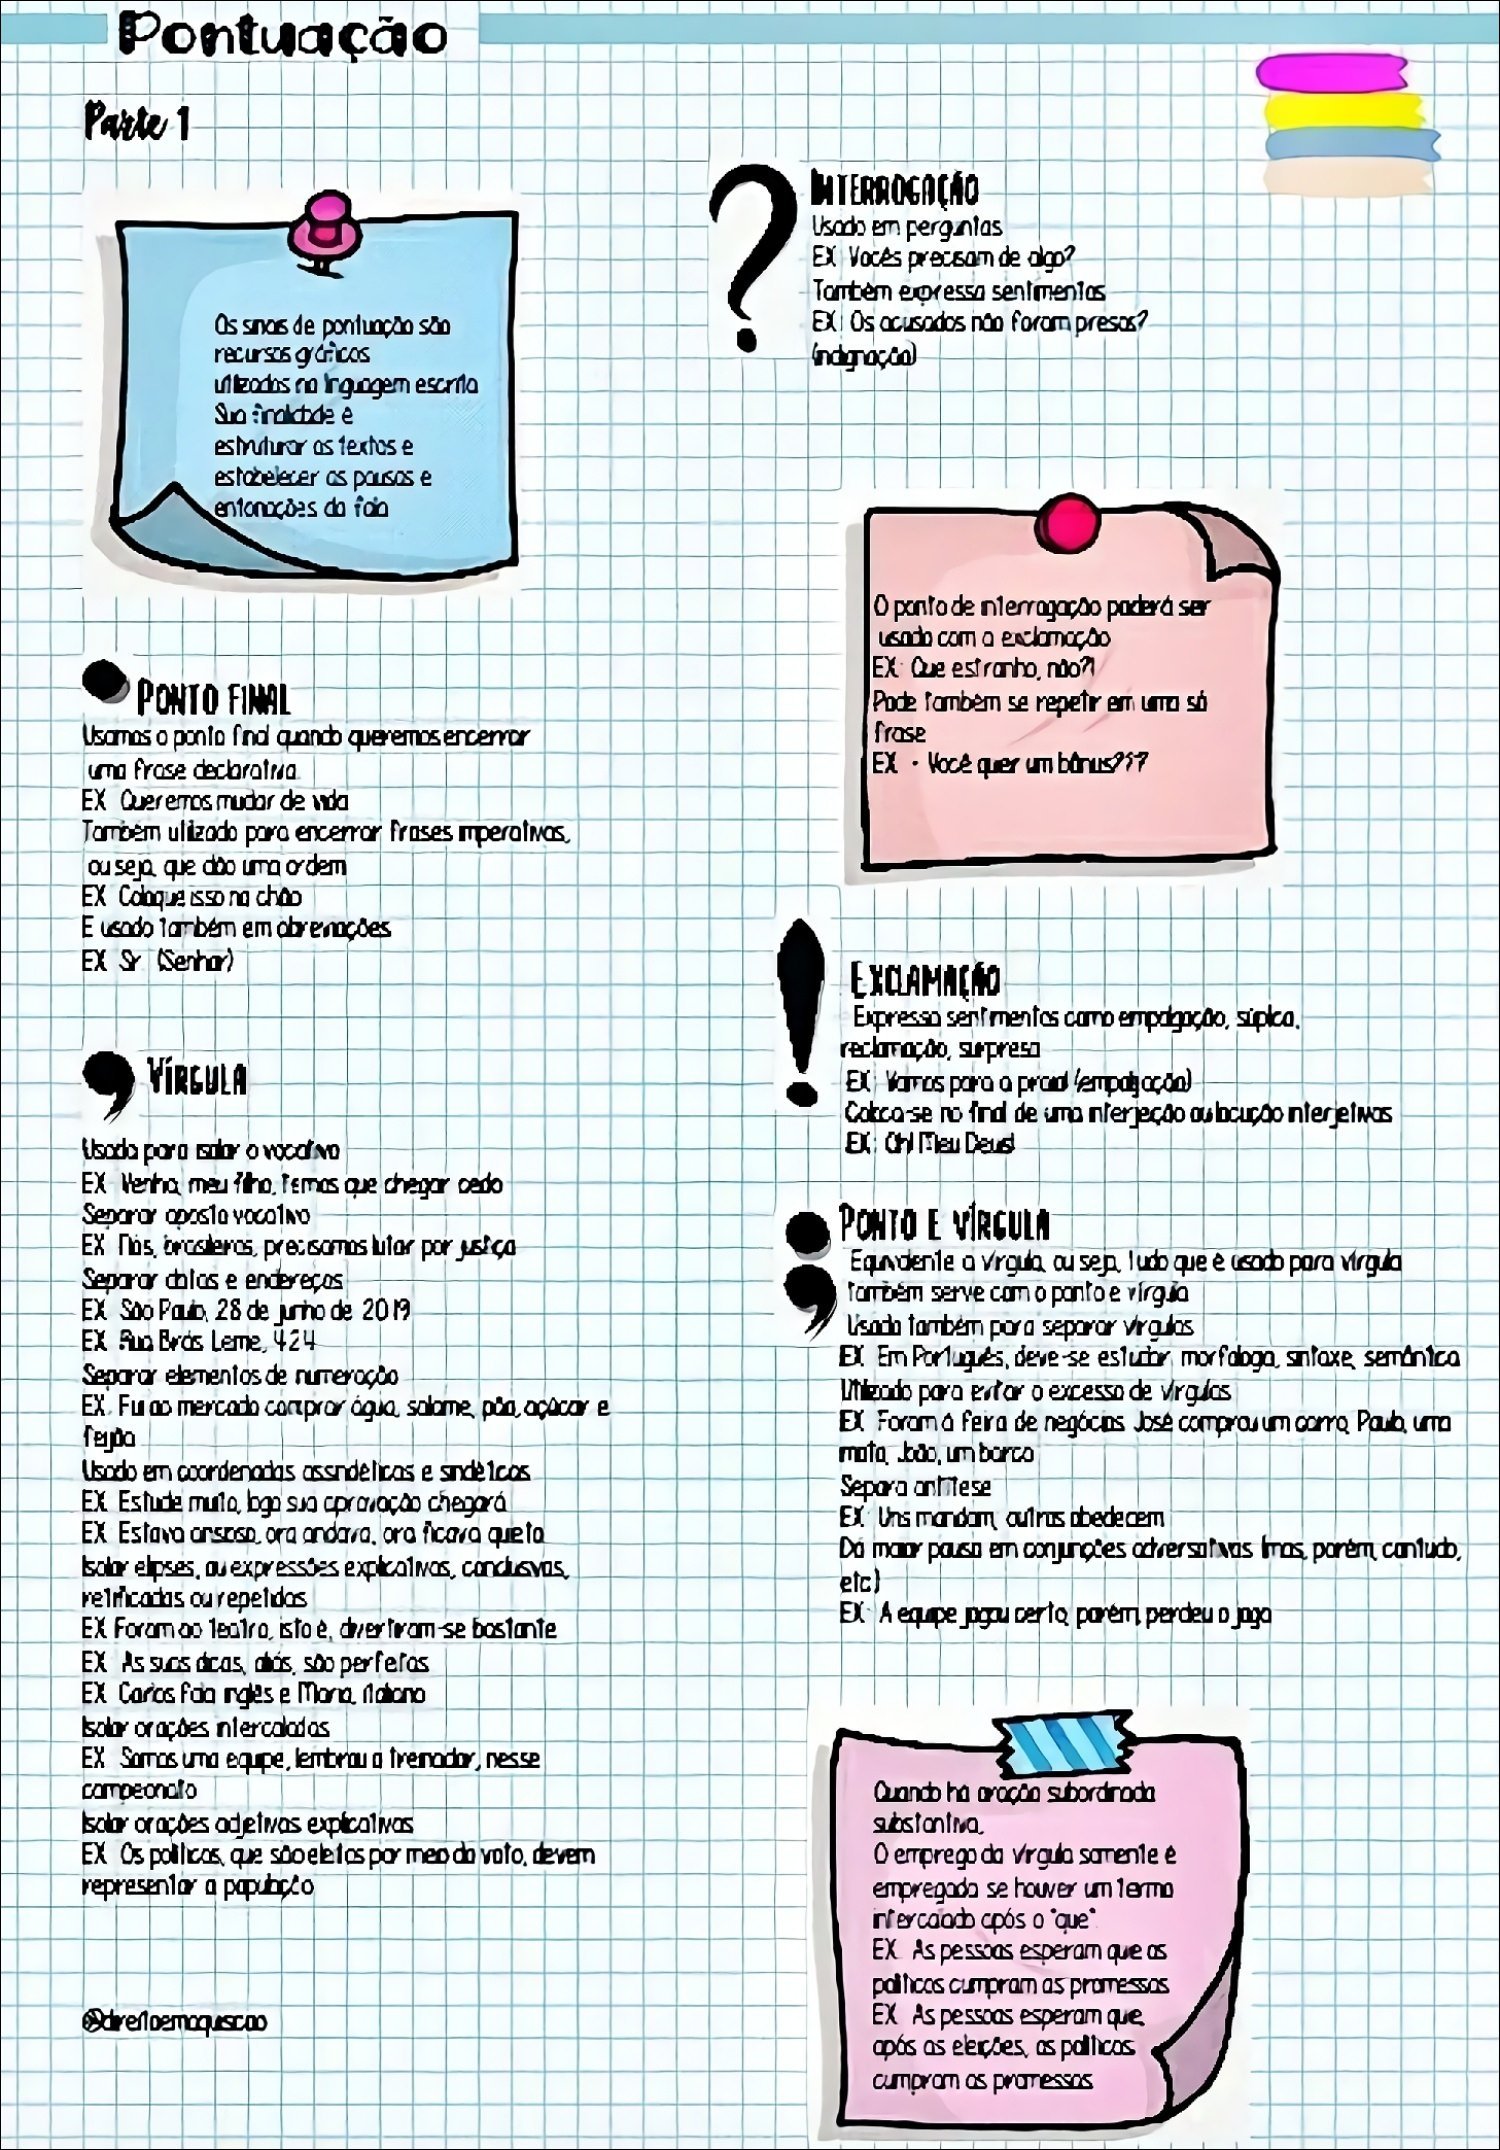 Pontuação
Parte 1
Os sinais de pontuação são
recursos gráficos
utilizados na linguagem escrita
Sua finalidade é
estruturar os textos e
estabelecer as pausas e
entonações da fala
Ponto final
Usamos o ponto final quando queremos encerrar
uma frase declarativa.
EX: Queremos mudar de vida
Também utilizado para encerrar frases imperativas,
ou seja, que dão uma ordem
EX: Coloque isso no chão
E usado também em abreviações
EX: Sr. (Senhor)
Vírgula
Usada para isolar o vocativo
EX: Venha, meu filho, temos que chegar cedo
Separar aposto vocativo
EX: Nós, brasileiros, precisamos lutar por justiça
Separar datas e endereços
EX: São Paulo, 28 de junho de 2019
EX: Rua Brás Leme, 424
Separar elementos de numeração
EX: Fui ao mercado comprar água, salame, pão, açúcar e
feijão
Usado em coordenadas assindéticas e sindéticas
EX: Estude muito, logo sua aprovação chegará
EX: Estava ansiosa, ora andava, ora ficava quieta
Isolar elipses, ou expressões explicativas, conclusivas,
retificadas ou repetidas
EX: Foram ao teatro, isto é, divertiram-se bastante
EX: As suas dicas, aliás, são perfeitas
EX: Carlos fala inglês e Maria, italiano
Isolar orações intercaladas
EX: Somos uma equipe, lembrou o treinador, nesse
campeonato
Isolar orações adjetivas explicativas
EX: Os políticos, que são eleitos por meio do voto, devem
representar a população
@direitoemaquisicao
Interrogação
Usado em perguntas
EX: Vocês precisam de algo?
Também expressa sentimentos
EX: Os acusados não foram presos?
(indignação)
O ponto de interrogação poderá ser
usado com a exclamação
EX: Que estranho, não?!
Pode também se repetir em uma só
frase
EX: - Você quer um bônus???
Exclamação
Expressa sentimentos como empolgação, súplica,
reclamação, surpresa
EX: Vamos para a praia! (empolgação)
Coloca-se no final de uma interjeição ou locução interjetivas
EX: Oh! Meu Deus!
Ponto e vírgula
Equivalente a vírgula, ou seja, tudo que é usado para vírgula
também serve com o ponto e vírgula
Usado também para separar vírgulas
EX: Em Português, deve-se estudar: morfologia; sintaxe; semântica
Utilizado para evitar o excesso de vírgulas
EX: Foram à feira de negócios: José comprou um carro; Paulo, uma
moto; João, um barco
Separa antítese
EX: Uns mandam; outros obedecem
Dá maior pausa em conjunções adversativas (mas, porém, contudo,
etc)
EX: A equipe jogou certo; porém, perdeu o jogo
Quando há oração subordinada
substantiva,
O emprego da vírgula somente é
empregada se houver um termo
intercalado após o "que"
EX: As pessoas esperam que os
políticos cumpram as promessas
EX: As pessoas esperam que,
após as eleições, os políticos
cumpram as promessas